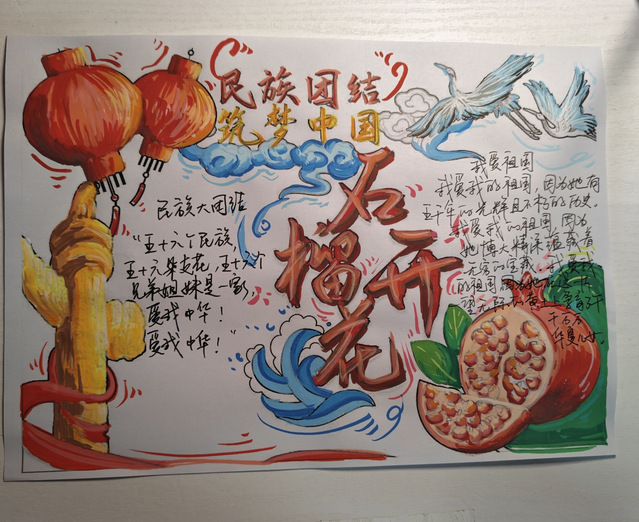 民族团结
筑梦中国
石
榴开
花
民族大团结
“五十六个民族，
五十六朵花，五十六个
兄弟姐妹是一家，
爱我中华！
爱我中华！”
我爱祖国
我爱我的祖国，因为她有
五千年的光辉且不朽的历史。
我爱我的祖国，因为
她博大精深蕴藏着
无穷的宝藏。我爱我
的祖国，因为她
望无际
千百万
华夏儿女。